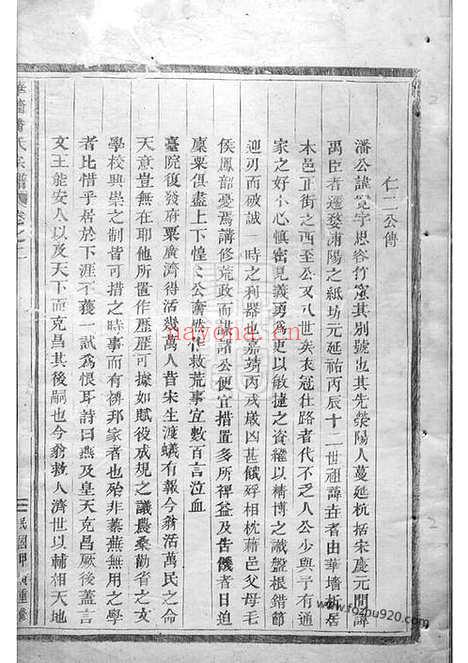 仁二公傳
潘公諱寬字思容竹窻其別號也其先滎陽人蔓延杭括宋慶元間諱
禺臣者遷婺浦陽之紙坊元延祐丙辰十二世祖諱 者由華墻析居
本邑正街之西至公又八世矣衣冠仕路者代不乏人公少與予有通
家之好小心慎密見義勇爲以敏捷之資纙以精博之識盤根錯節
迎刃而破誠一時之利器也嘉靖丙戌歲凶甚餓殍相枕藉邑父母毛
侯鳳韶憂焉講修荒政而謀諸公便宜措置多所裨益及告饑者日迫
廩粟俱盡上下惶 公奮然作救荒事宜數百言泣血
臺院復發府粟廣濟得活幾萬人昔宋生渡蟻有報今翁活萬民之命
天意豈無在耶他所述作歷歷可據如賦役成規之議農桑勸省之文
學校興崇之制皆可措之時事而有裨邦家者也殆非蓁蕪無用之學
者比惜乎居於下涯不獲一試爲恨耳詩曰燕及皇天克昌厥後蓋言
文王能安人以及天下而克昌其後嗣也今翁救人濟世以輔相天地
華墻潘氏宗譜 卷之二
民國甲 重修
nayona.cn
www.fozhu920.com